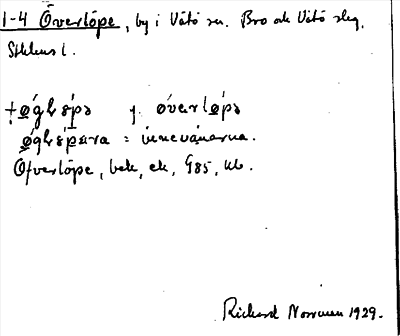 1-4 Överlöpe, by i Vätö sn. Bro ok Vätö slg.
Sthlms l.
†ǿglǝpǝ y. ǿvǝrlǿpǝ
ǿglǝpara = innevånarna.
Öfverlöpe, bek, ek, G85, kb.
Richard Norrman 1929.